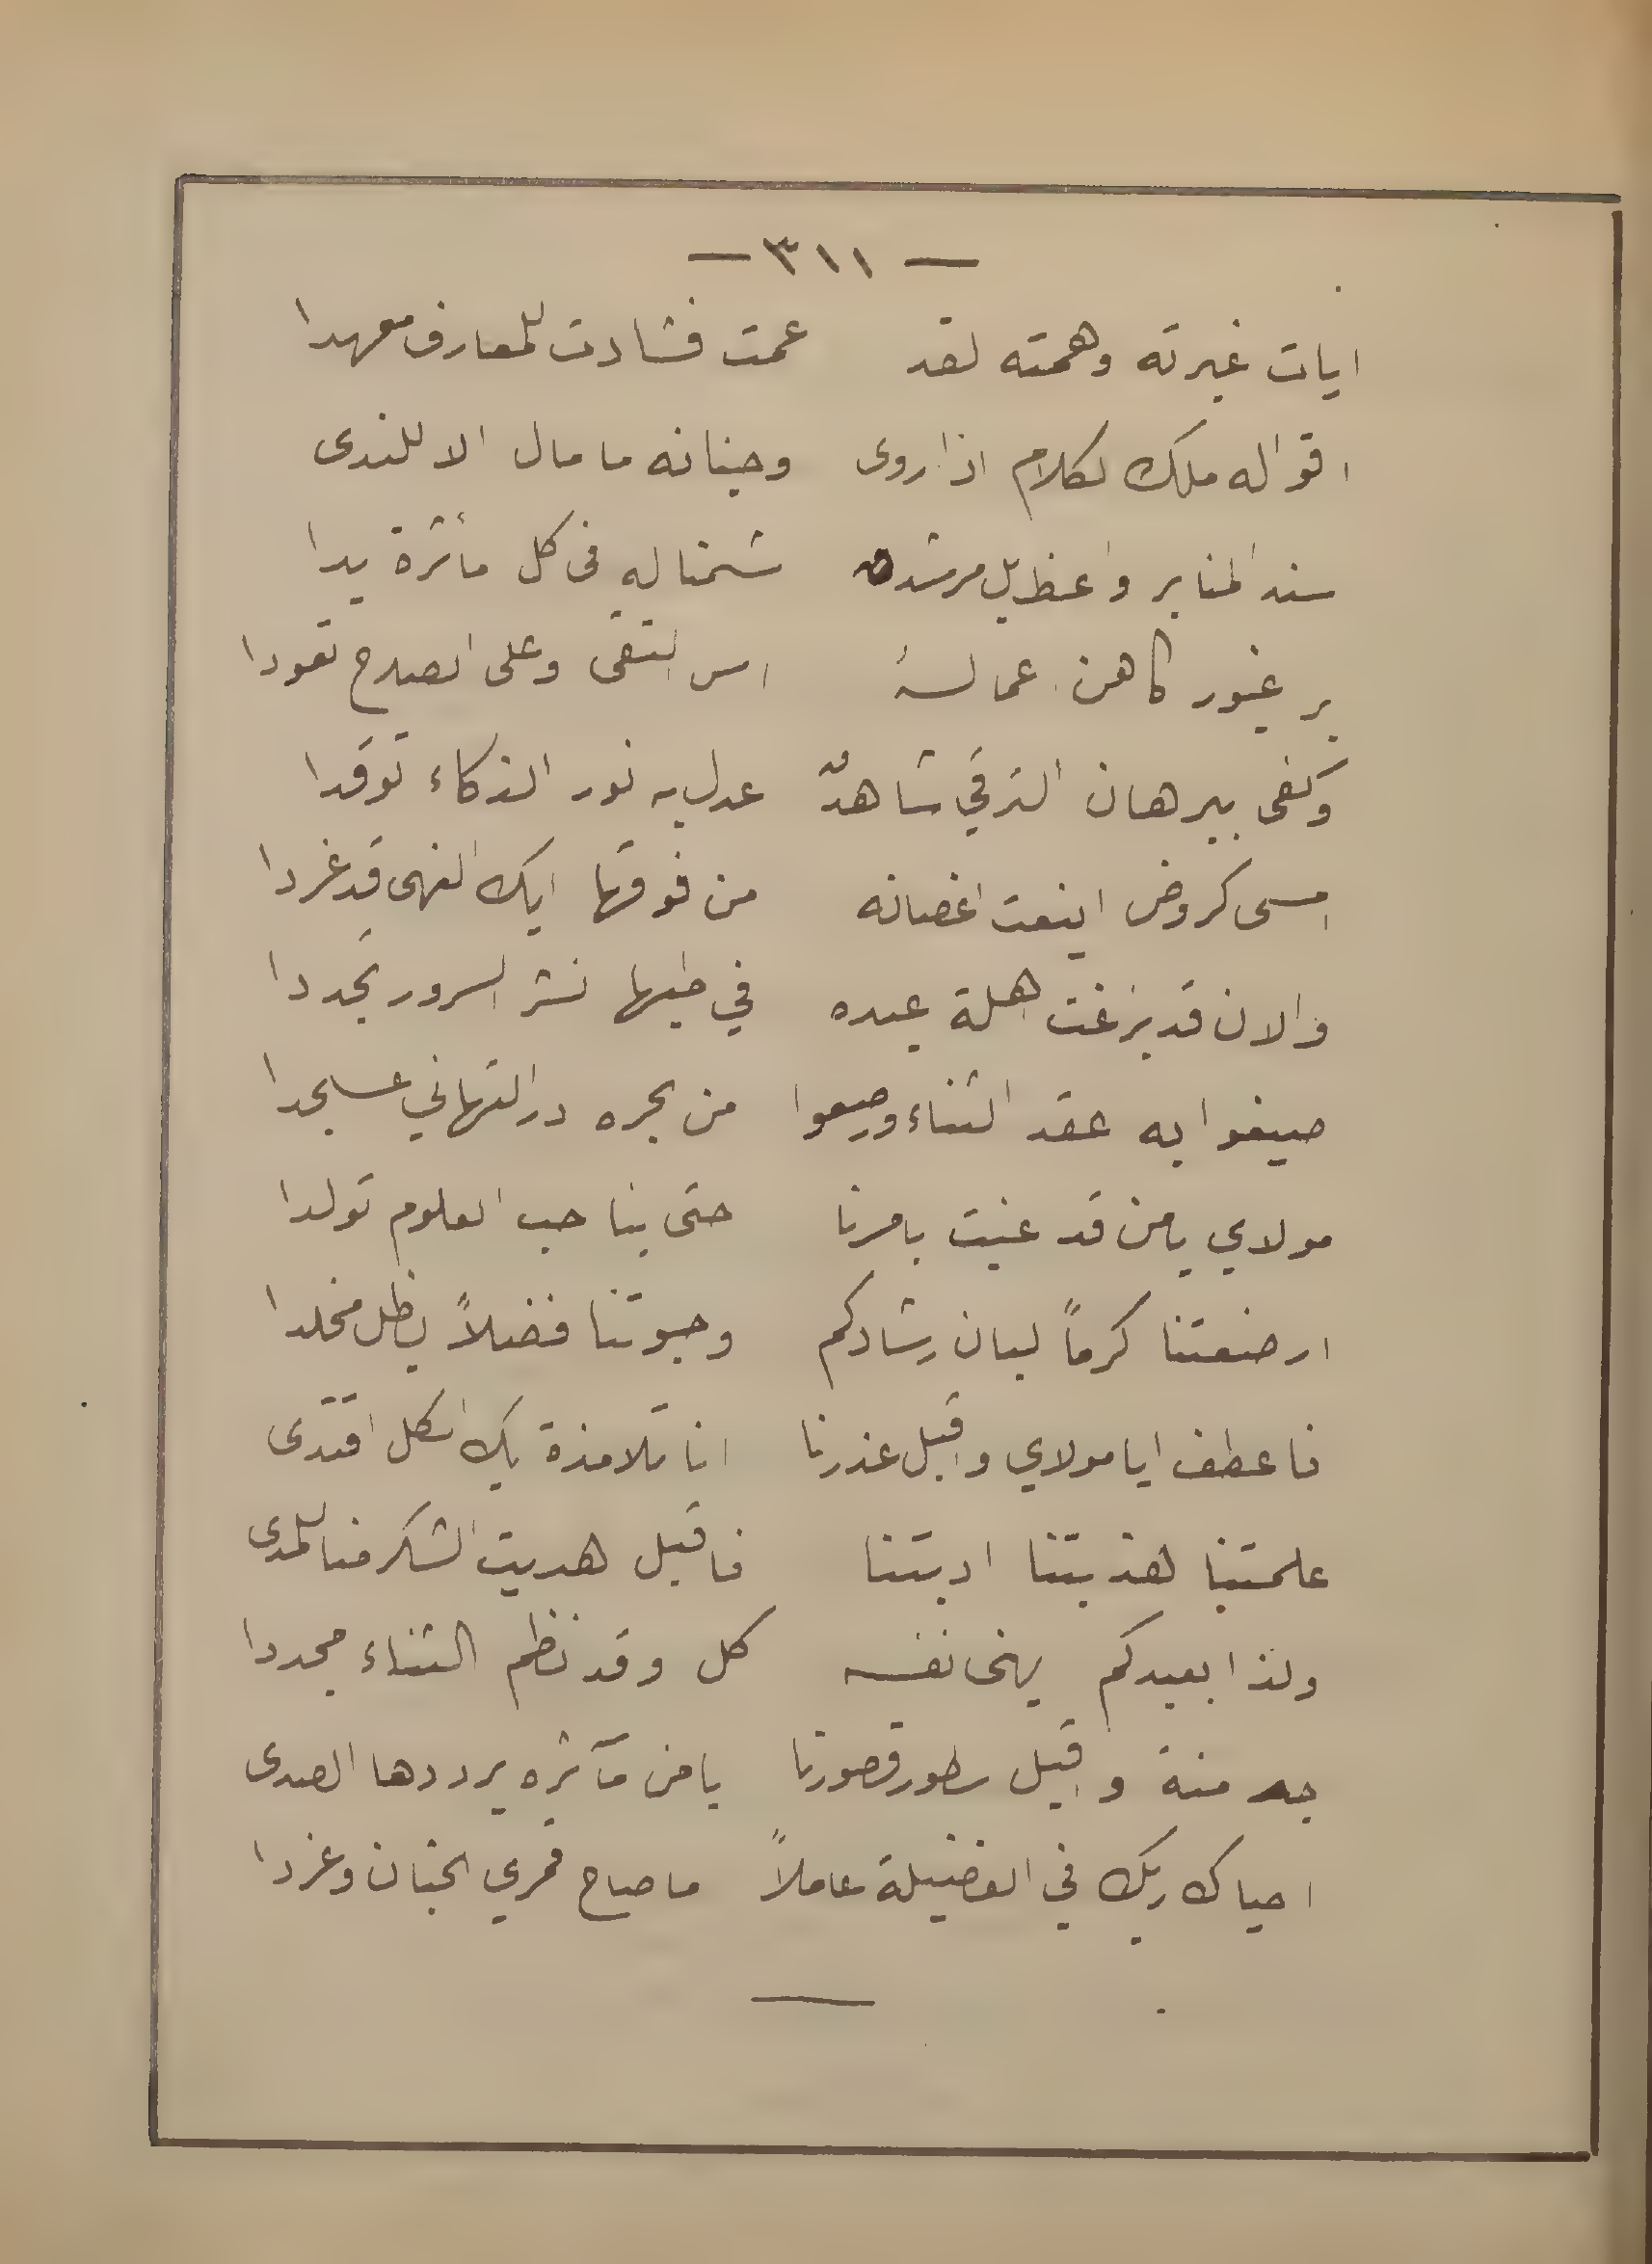 — ٣١١ —
ايات غيرته وهمته لقد عمت فشادت للمعارف معهدا
اقواله ملك الكلام اذا روى وجنانه ما مال الا للندى
سند المنابر واعظ بل مرشد شمنا له في كل مأثرة يدا
بر غيور كاهن عماله اس التقى وعلى الصلاح تعودا
وكفى ببرهان الترقي شاهدٌ عدل به نور الذكاء توقدا
امسى كروض اينعت اغصانه من فوقها ايك النهى قد غردا
والان قد بزغت اهلة عيده في طيها نشر السرور تجددا
صيغوا به عقد الثناء ورصعوا من بحره در التهاني عسجدا
مولاي يا من قد عنيت بامرنا حتى بنا حب العلوم تولدا
ارضعتنا كرماً لبان رشادكم وحبوتنا فضلاً يظل مخلدا
فاعطف ايا مولاي واقبل عذرنا انا تلامذة بك الكل اقتدى
علمتنا هذبتنا ادبتنا فاقبل هديت الشكر منا للمدى
ولذا بعيدكم يهنى نفسه كل وقد نظم الثناء مجددا
جد منة واقبل سطور قصورنا يا من مآثره يرددها الصدى
احياك ربك في الفضيلة عاملاً ما صاح قمري الجنان وغردا